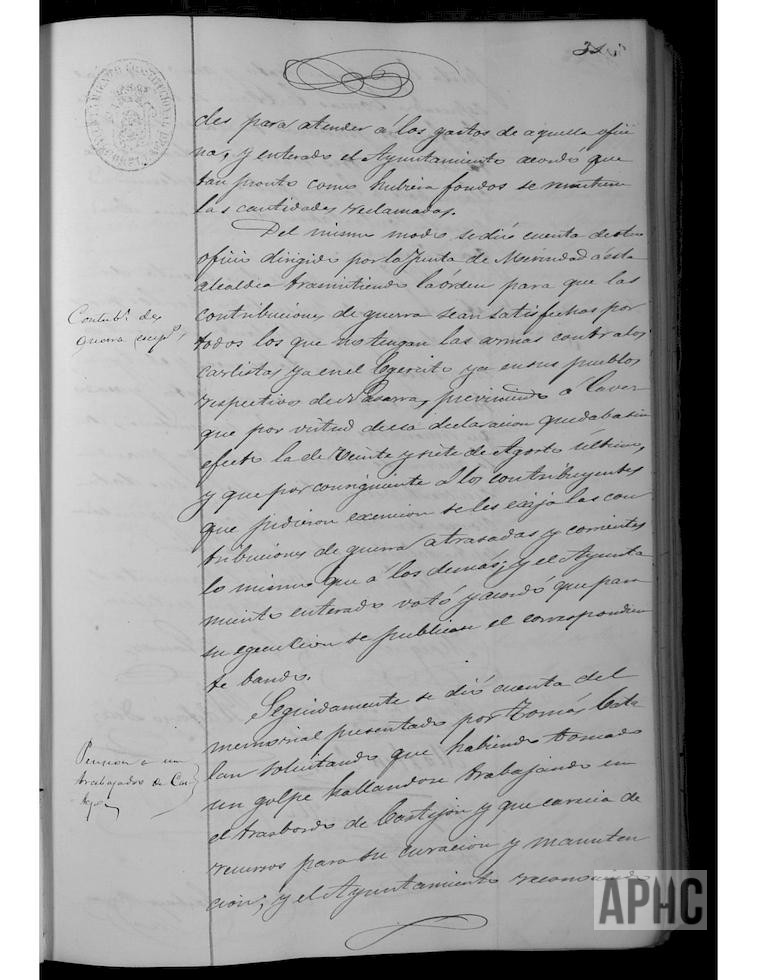 des para atender á los gastos de aquella ofici
na, y enterado el Ayuntamiento acordó que
tan pronto como hubiera fondos se remitieran
las cantidades reclamadas.
Del mismo modo se dió cuenta de otro
oficio dirigido por la Junta de Merindad á esta
alcaldia trasmitiendo la órden para que las
Contrib.s de
Guerra
contribuciones de guerra sean satisfechas por
todos los que no tengan las armas contra los
carlistas ya en el Egercito ya en sus pueblos
respectivos de Navarra, previniendo á la vez
que por virtud de esa declaracion quedaba sin
efecto la de Veinte y siete de Agosto último,
y que por consiguiente á los contribuyentes
que pidieron exencion se les exija las con
tribuciones de guerra atrasadas y corrientes
lo mismo que á los demás; y el Ayunta
miento enterado votó y acordó que para
su egecucion se publicase el correspondien
te bando.
Seguidamente se dió cuenta del
memorial presentado por Tomás Cata
Pension a un
trabajador de Cas
lan solicitando que habiendo tomado
un golpe hallandose trabajando en
el trasbordo de Castejon y que carecia de
recursos para su curacion y manuten
cion; y el Ayuntamiento reconociendo
APHC